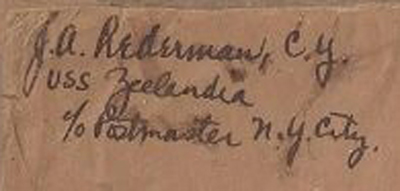 J. A. Rederman, C. Y.
USS Zeelandia
c/o Postmaster N. Y. City.